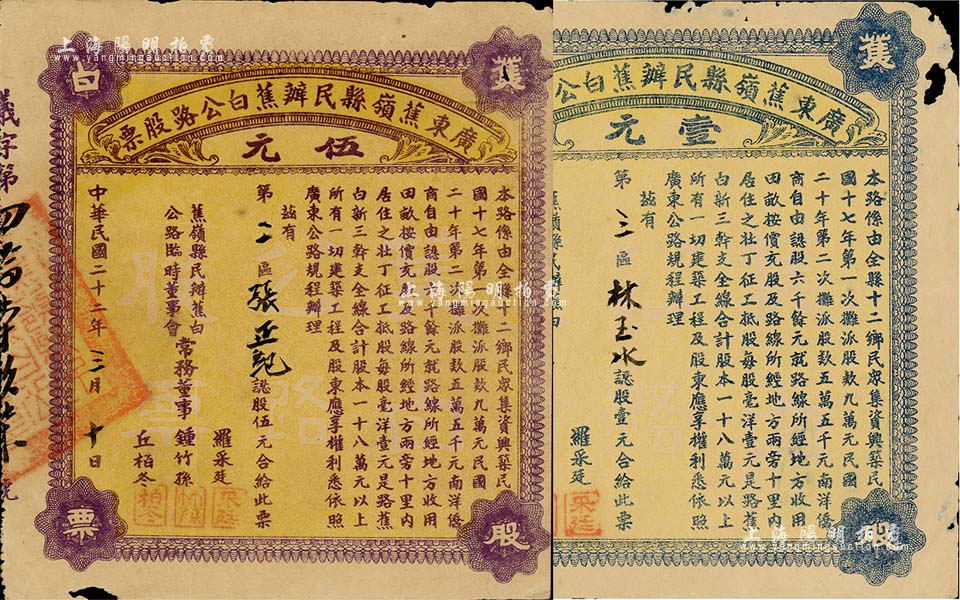 上海陽明拍賣
www.yangmingauction.com
蕉
白
股
票
廣東蕉嶺縣民辦蕉白公路股票
伍元
本路係由全縣十二鄉民眾集資興築民
國十七年第一次攤派股款九萬元民國
二十年第二次攤派股款五萬五千元南洋僑
商自由認股六千餘元就路線所經地方收用
田畝按價充股及路線所經地方兩旁十里內
居住之壯丁征工抵股每股毫洋壹元是路蕉
白新三幹支全線合計股本一十八萬元以上
所有一切建築工程及股東應享權利悉依照
廣東公路規程辦理
茲有
第二區張亞乾認股伍元合給此票
蕉嶺縣民辦蕉白
公路臨時董事會
常務董事
羅采廷
鍾竹孫
丘柏冬
中華民國二十二年三月十日
義字第
號
蕉
股
廣東蕉嶺縣民辦蕉白公
壹元
本路係由全縣十二鄉民眾集資興築民
國十七年第一次攤派股款九萬元民國
二十年第二次攤派股款五萬五千元南洋僑
商自由認股六千餘元就路線所經地方收用
田畝按價充股及路線所經地方兩旁十里內
居住之壯丁征工抵股每股毫洋壹元是路蕉
白新三幹支全線合計股本一十八萬元以上
所有一切建築工程及股東應享權利悉依照
廣東公路規程辦理
茲有
第三區林玉水認股壹元合給此票
蕉嶺縣民辦蕉白
羅采廷
上海陽明拍賣
www.yangmingauction.com
上海陽明拍賣
www.yangmingauction.com